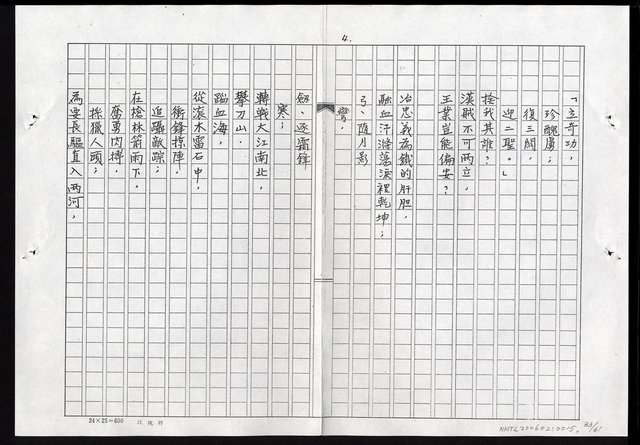 4.
「立奇功,
殄醜虜;
復三關,
迎二聖。」
捨我其誰?
漢賊不可兩立,
王業豈能偏安?
冶忠義為鐵的肝胆,
融血汗滌蕩淚裡乾坤;
弓、隨月影
彎,
劍、逐霜鋒
寒;
轉戰大江南北,
攀刀山,
蹈血海,
從滾木雷石中,
衝鋒探陣,
追驅敵踪;
在槍林箭雨下,
奮勇肉搏,
採獵人頭;
為要長驅直入兩河,
24×25=600
NMTL20060210015,
33/61